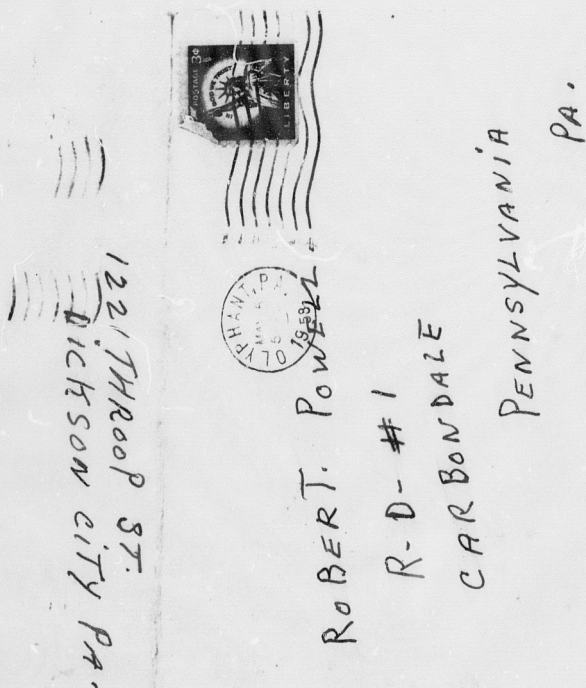 122 THROOP ST.
DICKSON CITY PA.
POSTAGE 3¢
IN GOD WE TRUST
LIBERTY
OLYPHANT, PA.
MAY
5
1958
ROBERT. POWELL
R-D- #1
CARBONDALE
PENNSYLVANIA
PA.